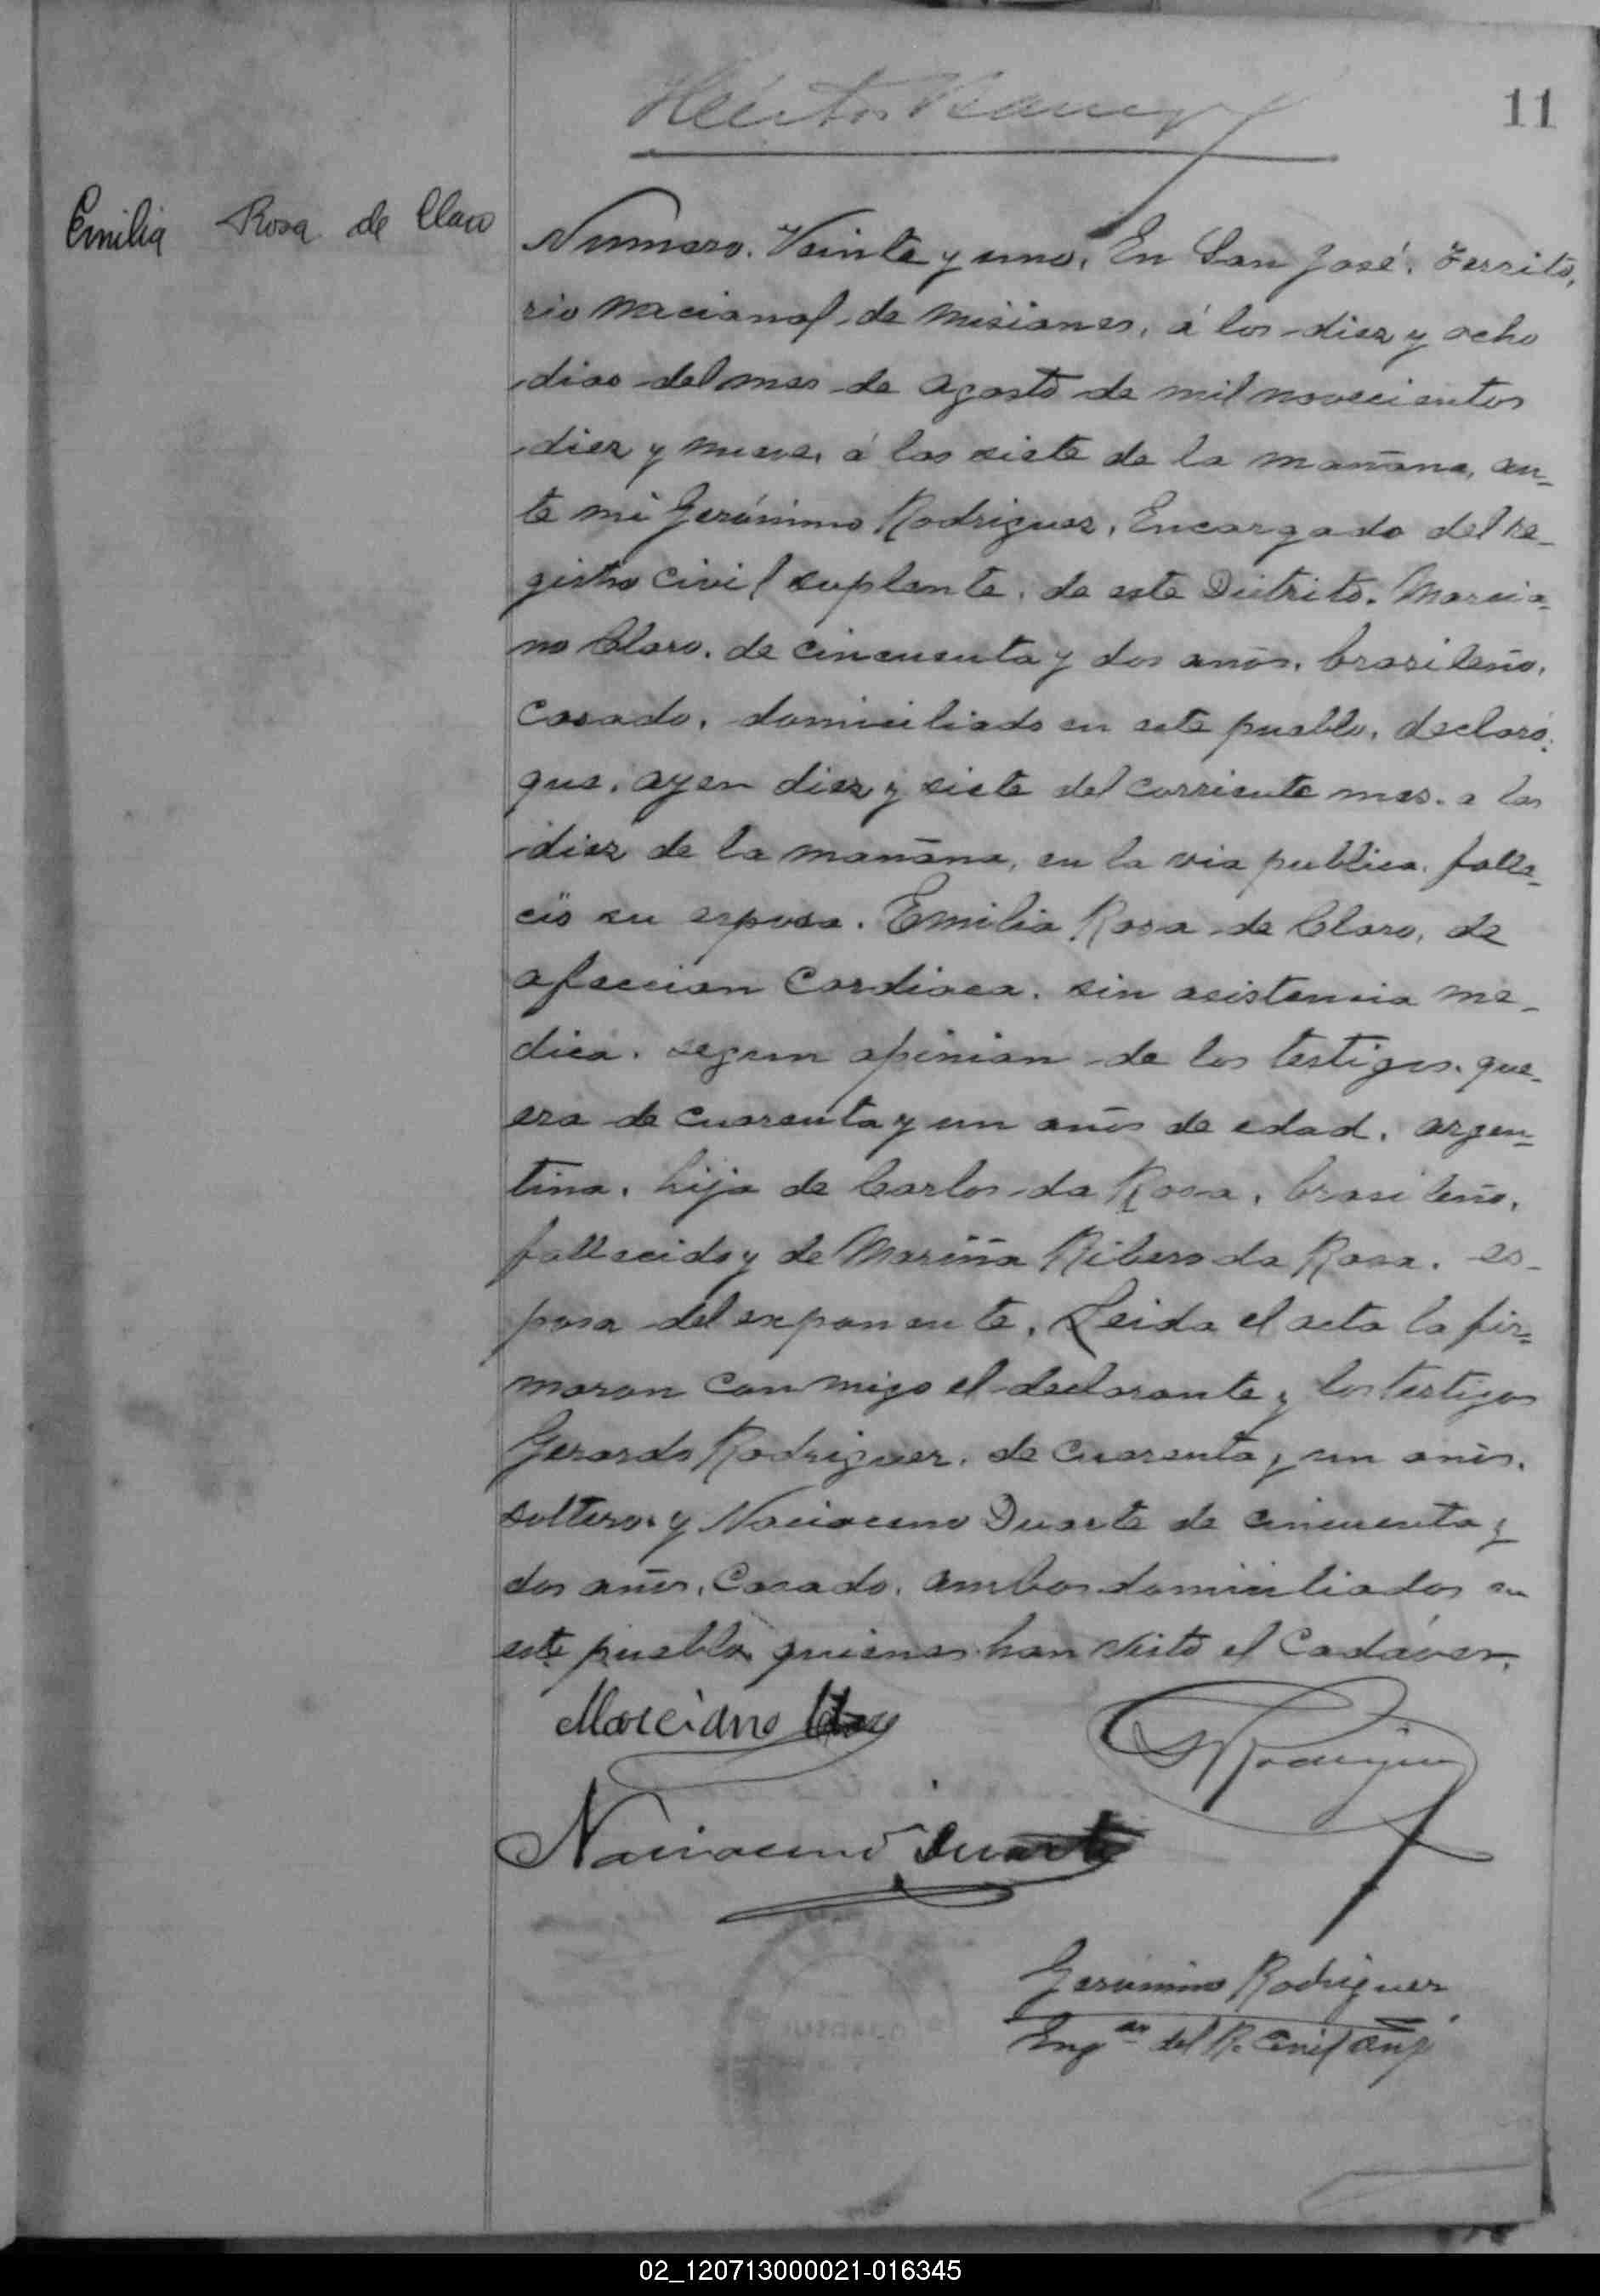 11
Héctor
Emilia Rosa de Claro
Numero. Veinte y uno. En San José. Territo,
rio nacional de Misiones, á los diez y ocho
dias del mes de agosto de mil novecientos
diez y nueve, á las siete de la mañana, an-
te mi Gerónimo Rodriguez, Encargado del Re-
gistro Civil suplente, de este Distrito. Marcia-
no Claro, de cincuenta y dos años, brasileño,
casado, domiciliado en este pueblo, declaró:
que, ayer diez y siete del corriente mes. a las
diez de la mañana, en la via publica, falle-
ció su esposa. Emilia Rosa de Claro, de
afeccion Cardiaca. sin asistencia me-
dica. segun opinion de los testigos. que-
era de cuarenta y un años de edad, argen-
tina, hija de Carlos da Rosa, brasileño,
fallecido y de Mariña Ribero da Rosa. es-
posa del exponente. Leida el acta la fir-
maron conmigo el declarante y los testigos
Gerardo Rodriguez, de cuarenta y un años,
soltero. y Naciaceno Duarte de cincuenta y
dos años, Casado, ambos domiciliados en
este pueblo quienes han visto el Cadáver.
Marciano Claro
G Rodriguez
Naciaceno Duarte
Geronimo Rodriguez
Engdo del R. Civil sup
02_120713000021-016345